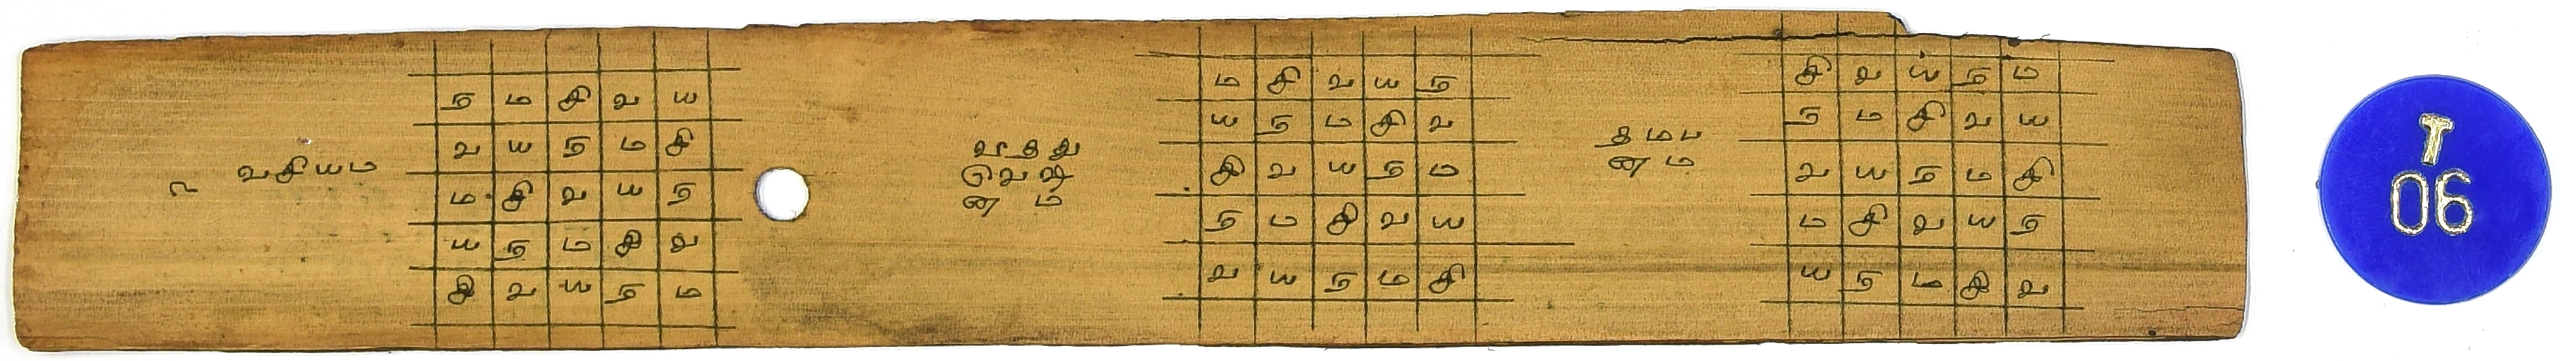 ௳ வசியம
ந ம சி வ ய
வ ய ந ம சி
ம சி வ ய ந
ய ந ம சி வ
சி வ ய ந ம
வெஷ
னம
ம சி வ ய ந
ய ந ம சி வ
சி வ ய ந ம
ந ம சி வ ய
வ ய ந ம சி
தமப
னம
சி வ ய ந ம
ந ம சி வ ய
வ ய ந ம சி
ம சி வ ய ந
ய ந ம சி வ
T
06